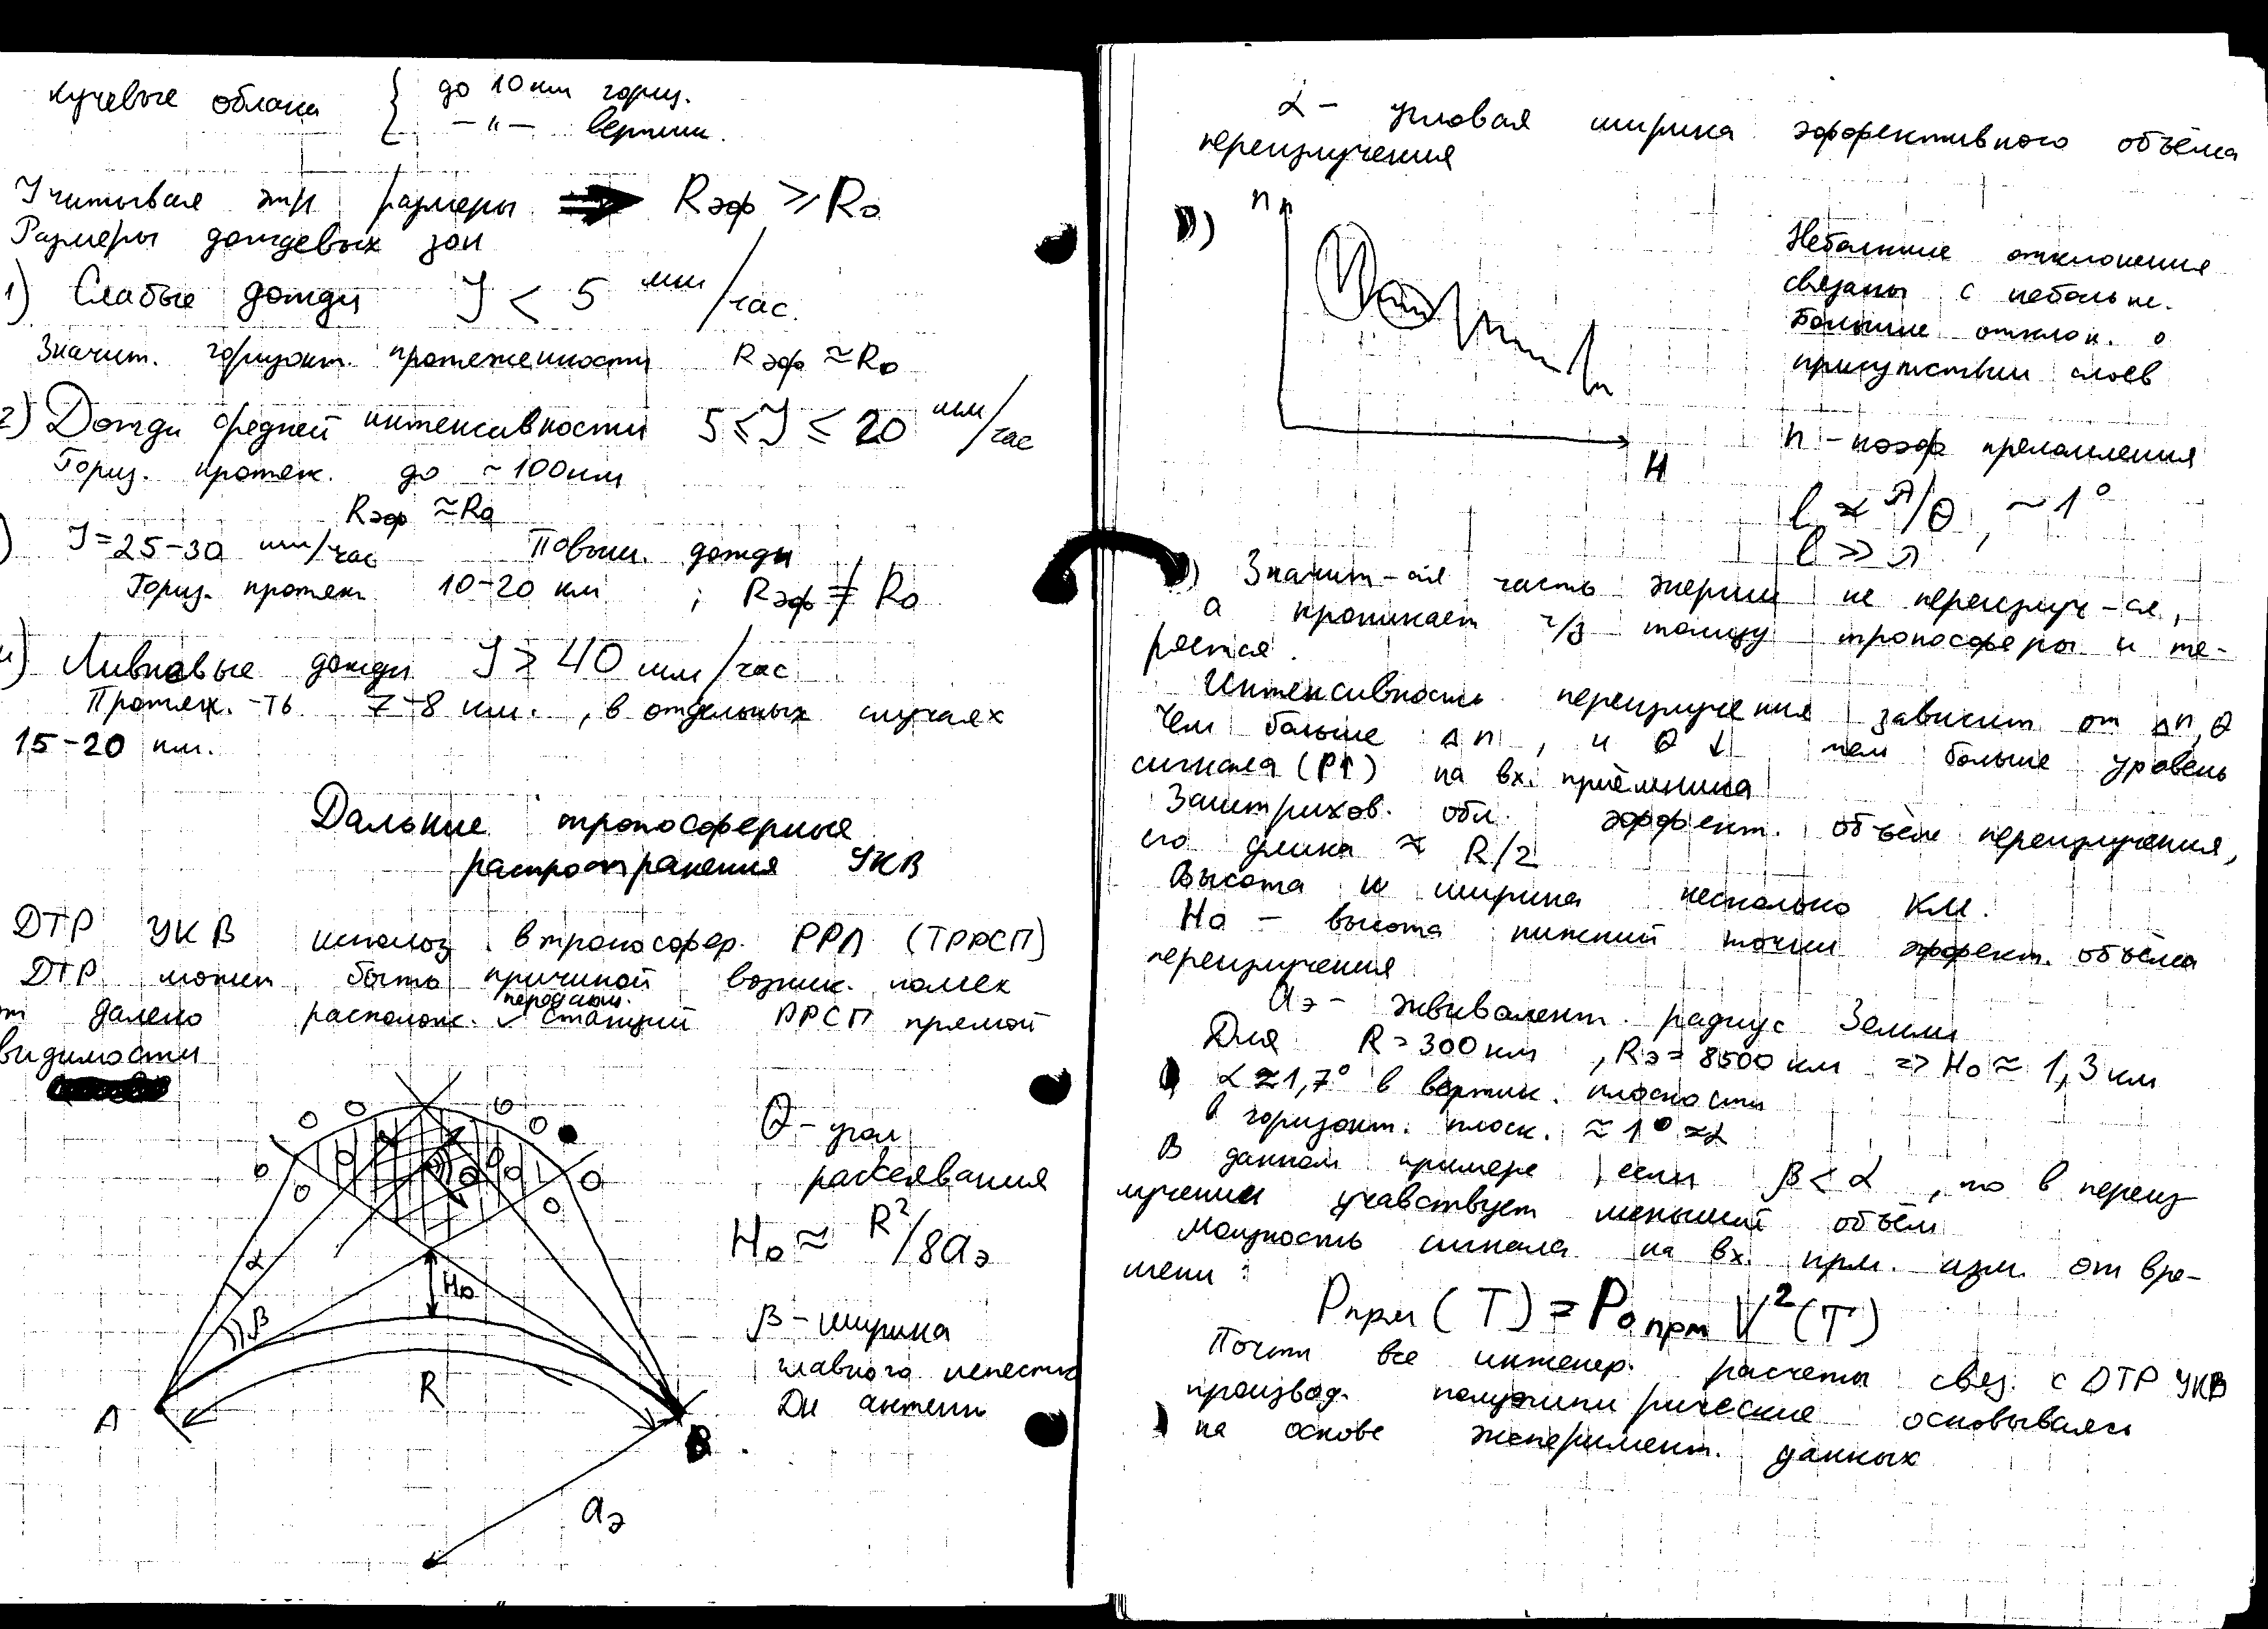 кучевые облака { до 10 км гориз.
—"— вертик.
Учитывая эти размеры ⇒ Rэф ≥ R₀
Размеры дождевых зон
1) Слабые дожди J < 5 мм/час.
Значит. горизонт. протеженности Rэф ≈ R₀
2) Дожди средней интенсивности 5 ≤ J ≤ 20 мм/час
Гориз. протяж. до ~100км
Rэф ≈ R₀
) J = 25-30 мм/час Повыш. дожди
Гориз. протяж 10-20 км ; Rэф ≠ R₀
) Ливневые дожди J ≥ 40 мм/час
Протяж.-ть 7-8 км. , в отдельных случаях
15-20 км.
Дальние тропосферные
распространения УКВ
ДТР УКВ использ. в тропосфер. РРЛ (ТРРСП)
ДТР может быть причиной возник. помех
от далеко располож. станций РРСП прямой
видимости
Θ - угол
рассеявания
H₀ ≈ R²/8aэ
β - ширина
главного лепестка
ДН антенн
α
β
H₀
R
A
B
aэ
α - угловая ширина эффективного объёма
переизлучения
)
n
H
Небольшие отклонения
связаны с небольш.
Большие отклон. о
присутствии слоев
n - коэф преломления
l ≈ λ/Θ , ~1°
l >> λ
) Значит-ая часть энергии не переизлуч-ся,
а проникает ч/з толщу тропосферы и те-
ряется.
Интенсивность переизлучения зависит от Δn, Θ
Чем больше Δn , и Θ ↓ тем больше уровень
сигнала (P↑) на вх. приёмника
Заштрихов. обл. эффект. объём переизлучения,
его длина ≈ R/2
Высота и ширина несколько км.
H₀ - высота нижний точки эффект. объёма
переизлучения
aэ - эквивалент. радиус Земли
Для R = 300 км , Rэ = 8500 км => H₀ ≈ 1,3 км
α ≈ 1,7° в вертик. плоскости
в горизонт. плоск. ≈ 1° ≈ α
В данном примере , если β < α , то в переиз
лучении учавствует меньший объём
Мощность сигнала на вх. прм. изм. от вре-
мени :
Pпрм (T) = P₀ прм V²(T)
Почти все инженер. расчеты связ. с ДТР УКВ
производ. основываясь
на основе эксперимент. данных